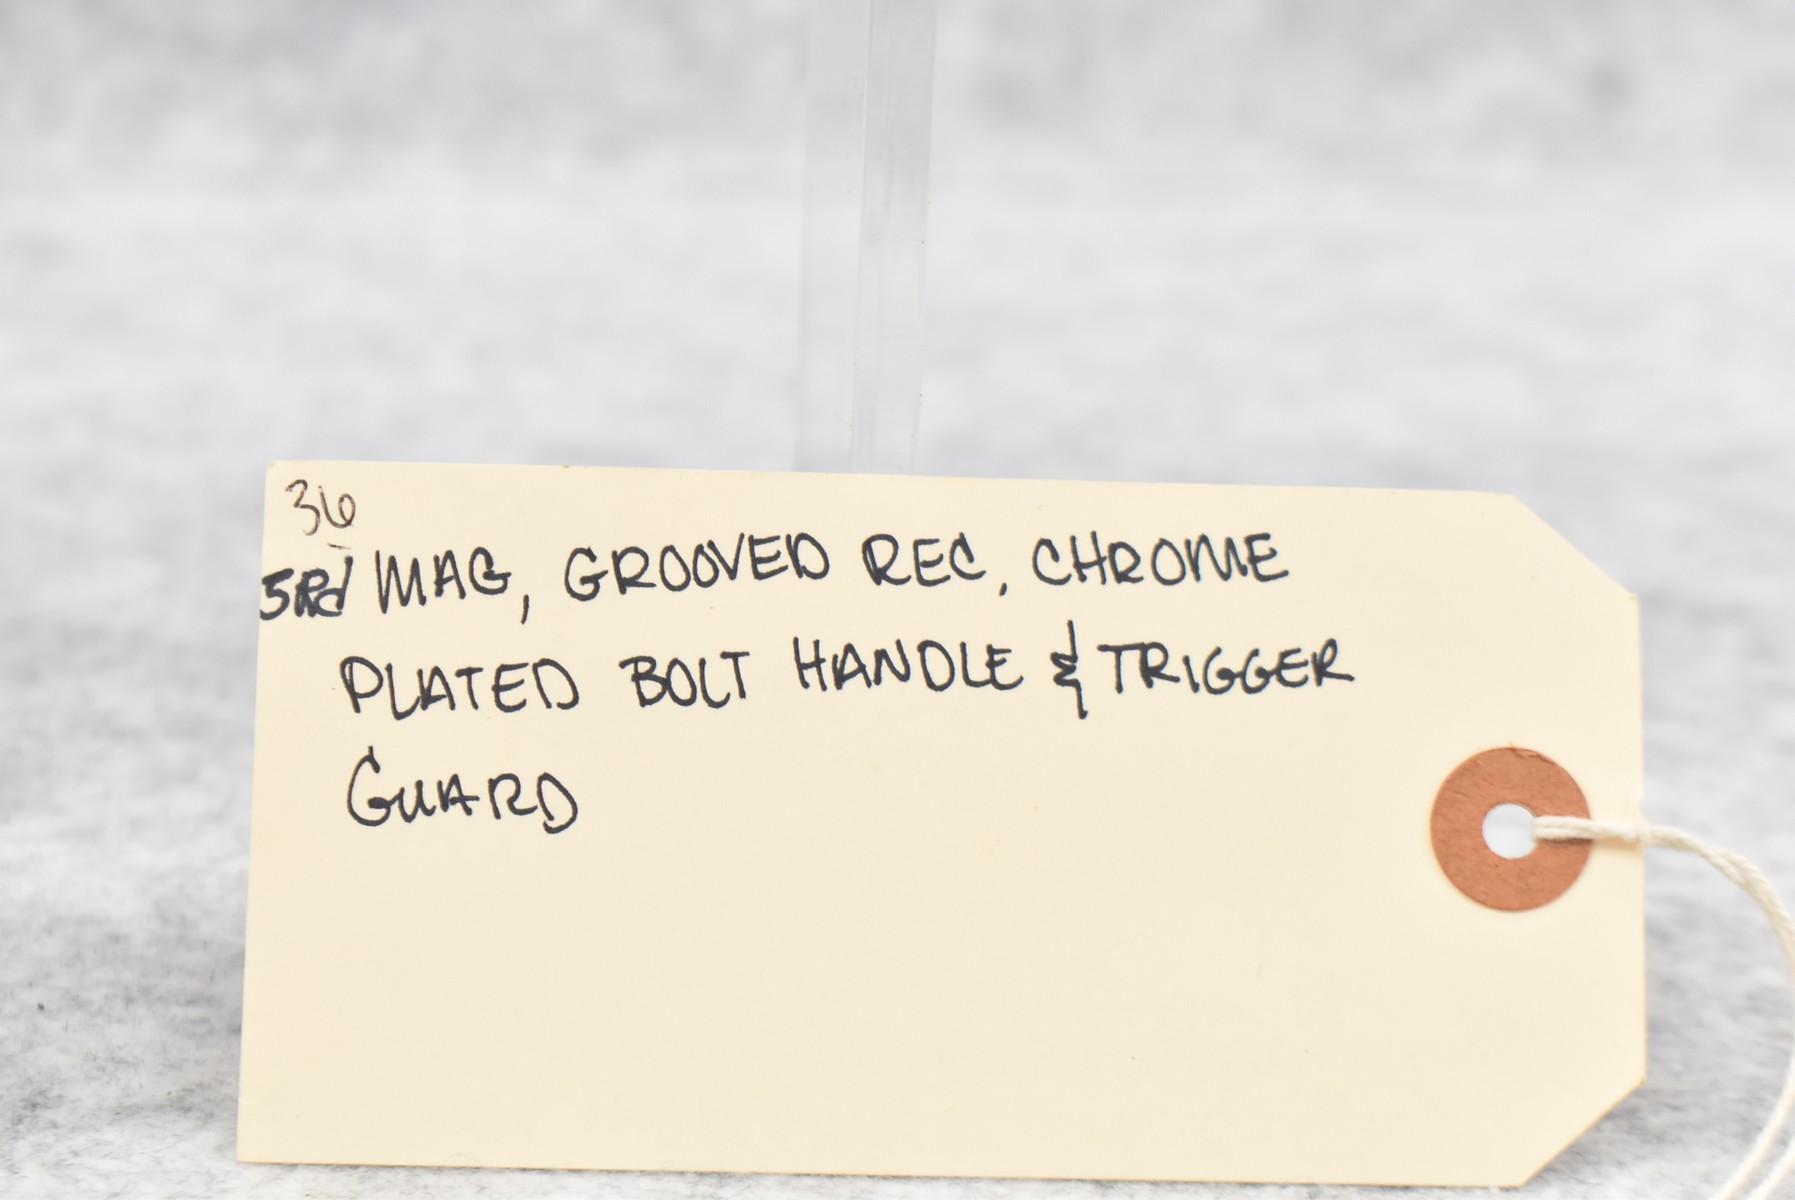 36
5Rd MAG, GROOVED REC, CHROME
PLATED BOLT HANDLE & TRIGGER
GUARD